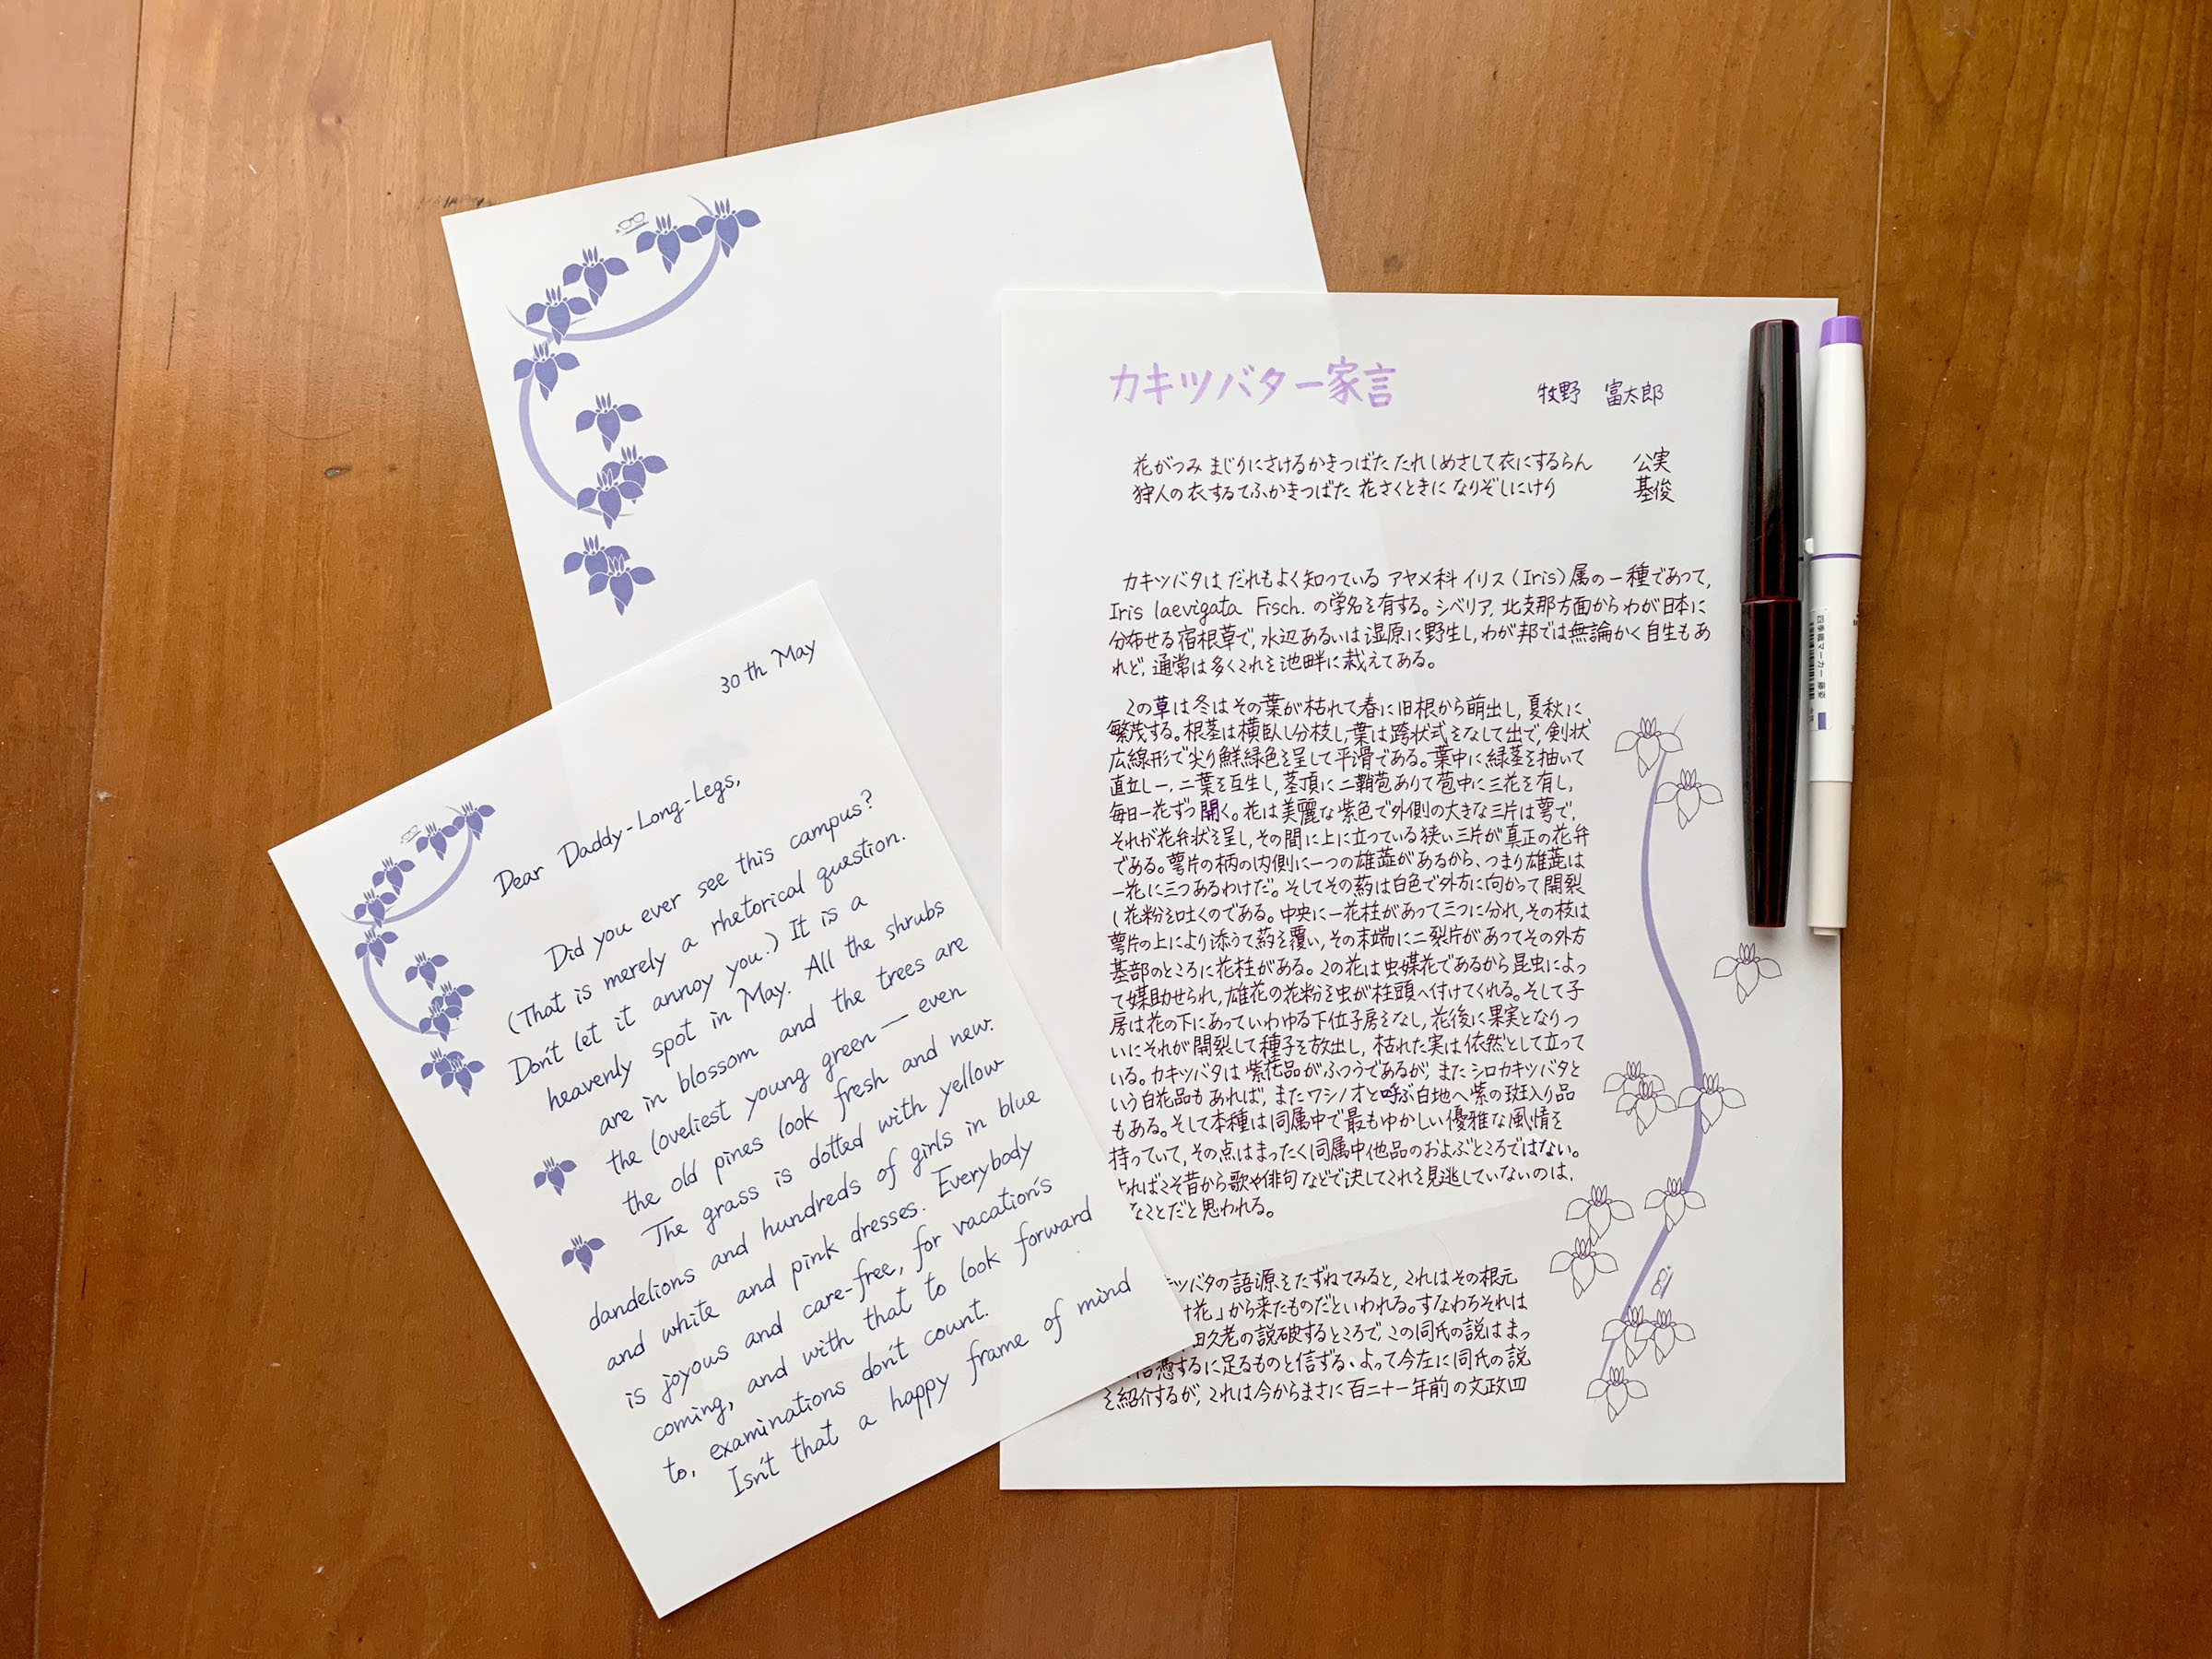 30th May
Dear Daddy-Long-Legs,
Did you ever see this campus?
(That is merely a rhetorical question.
Don't let it annoy you.) It is a
heavenly spot in May. All the shrubs
are in blossom and the trees are
the loveliest young green — even
the old pines look fresh and new.
The grass is dotted with yellow
dandelions and hundreds of girls in blue
and white and pink dresses. Everybody
is joyous and care-free, for vacation's
coming, and with that to look forward
to, examinations don't count.
Isn't that a happy frame of mind
カキツバタ一家言
牧野 富太郎
花がつみ まじりにさけるかきつばた たれしめさして衣にするらん 公実
狩人の衣するてふかきつばた 花さくときに なりぞしにけり 基俊
カキツバタは だれもよく知っている アヤメ科 イリス(Iris)属の一種であって,
Iris laevigata Fisch. の学名を有する。シベリア, 北支那方面からわが日本に
分布せる宿根草で, 水辺あるいは湿原に野生し, わが邦では無論かく自生もあ
れど, 通常は多くこれを池畔に栽えてある。
この草は冬はその葉が枯れて春に旧根から萌出し, 夏秋に
繁茂する。根茎は横臥し分枝し, 葉は跨状式をなして出で, 剣状
広線形で尖り鮮緑色を呈して平滑である。葉中に緑茎を抽いて
直立し一, 二葉を互生し, 茎頂に二鞘苞ありて苞中に三花を有し,
毎日一花ずつ開く。花は美麗な紫色で外側の大きな三片は萼で,
それが花弁状を呈し, その間に上に立っている狭い三片が真正の花弁
である。萼片の柄の内側に一つの雄蕊があるから、つまり雄蕊は
一花に三つあるわけだ。そしてその葯は白色で外方に向かって開裂
し花粉を吐くのである。中央に一花柱があって三つに分れ, その枝は
萼片の上により添うて葯を覆い, その末端に二裂片があってその外方
基部のところに花柱がある。この花は虫媒花であるから昆虫によっ
て媒助せられ, 雄花の花粉を虫が柱頭へ付けてくれる。そして子
房は花の下にあっていわゆる下位子房をなし, 花後に果実となりつ
いにそれが開裂して種子を放出し, 枯れた実は依然として立って
いる。カキツバタは紫花品がふつうであるが, またシロカキツバタと
いう白花品もあれば, またワシノオと呼ぶ白地へ紫の斑入り品
もある。そして本種は同属中で最もゆかしい優雅な風情を
持っていて, その点はまったく同属中他品のおよぶところではない。
ればこそ昔から歌や俳句などで決してこれを見逃していないのは,
なことだと思われる。
ツバタの語源をたずねてみると, これはその根元
花」から来たものだといわれる。すなわちそれは
田久老の説破するところで, この同氏の説はまっ
憑するに足るものと信ずる、よって今左に同氏の説
を紹介するが, これは今からまさに百二十一年前の文政四
四季織マーカー 藤姿